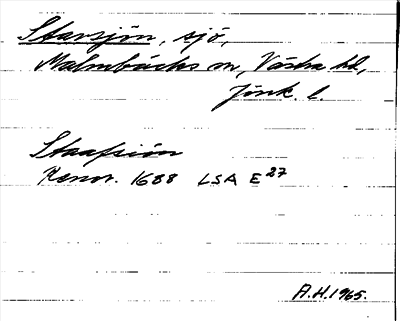 Stavsjön, sjö,
Malmbäcks sn, Västra hd,
Jönk. l.
Staafsiön
Renov. 1688 LSA E27
A.H. 1965.